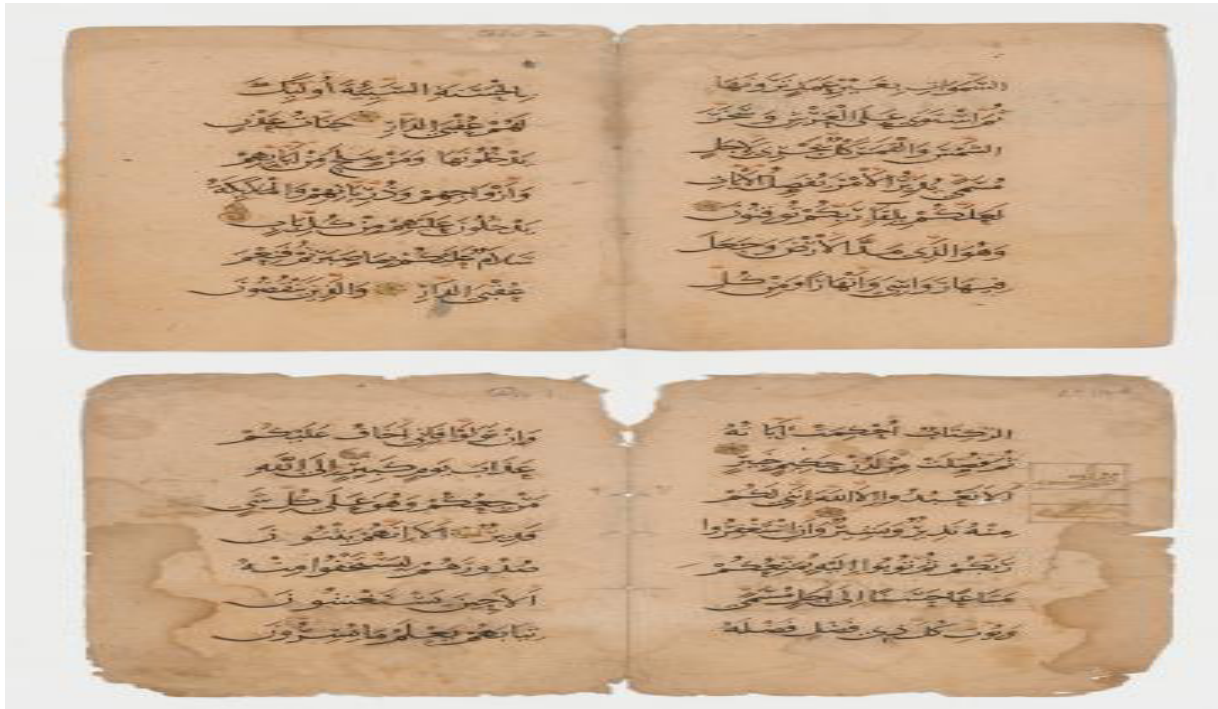 السموات بغير عمد ترونها
ثم استوى على العرش وسخر
الشمس والقمر كل يجري لاجل
مسمى يدبر الأمر يفصل الآيات
لعلكم بلقاء ربكم توقنون
وهو الذي مد الأرض وجعل
فيها رواسي وأنهارا ومن كل
بالحسنة السيئة أولئك
لهم عقبى الدار جنات عدن
يدخلونها ومن صلح من آبائهم
وأزواجهم وذرياتهم والملئكة
يدخلون عليهم من كل باب
سلام عليكم بما صبرتم فنعم
عقبى الدار والذين ينقضون
الر كتاب أحكمت آياته
ثم فصلت من لدن حكيم خبير
ألا تعبدوا إلا الله إنني لكم
منه نذير وبشير وأن استغفروا
ربكم ثم توبوا إليه يمتعكم
متاعا حسنا إلى أجل مسمى
ويؤت كل ذي فضل فضله
وإن تولوا فإني أخاف عليكم
عذاب يوم كبير إلى الله
مرجعكم وهو على كل شيء
قدير ألا إنهم يثنون
صدورهم ليستخفوا منه
ألا حين يستغشون
ثيابهم يعلم ما يسرون